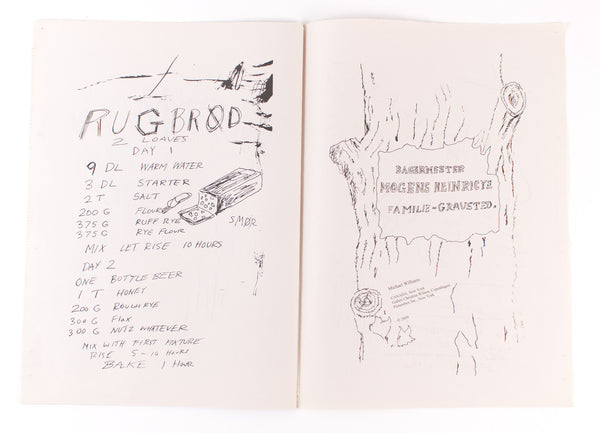 RUGBRØD
2 LOAVES
DAY 1
9 DL WARM WATER
3 DL STARTER
2 T SALT
200 G FLOUR
375 G RUFF RYE
375 G RYE FLOUR
MIX LET RISE 10 HOURS
SMØR
DAY 2
ONE BOTTLE BEER
1 T HONEY
200 G ROUGH RYE
300 G FLAX
300 G NUTZ WHATEVER
MIX WITH FIRST MIXTURE
RISE 5-10 HOURS
BAKE 1 HOUR
BAGERMESTER
MOGENS HEINRICYE
FAMILIE-GRAVSTED.
Michael Williams
CANADA, New York
Galleri Christina Wilson, Copenhagen
New York
© 2009